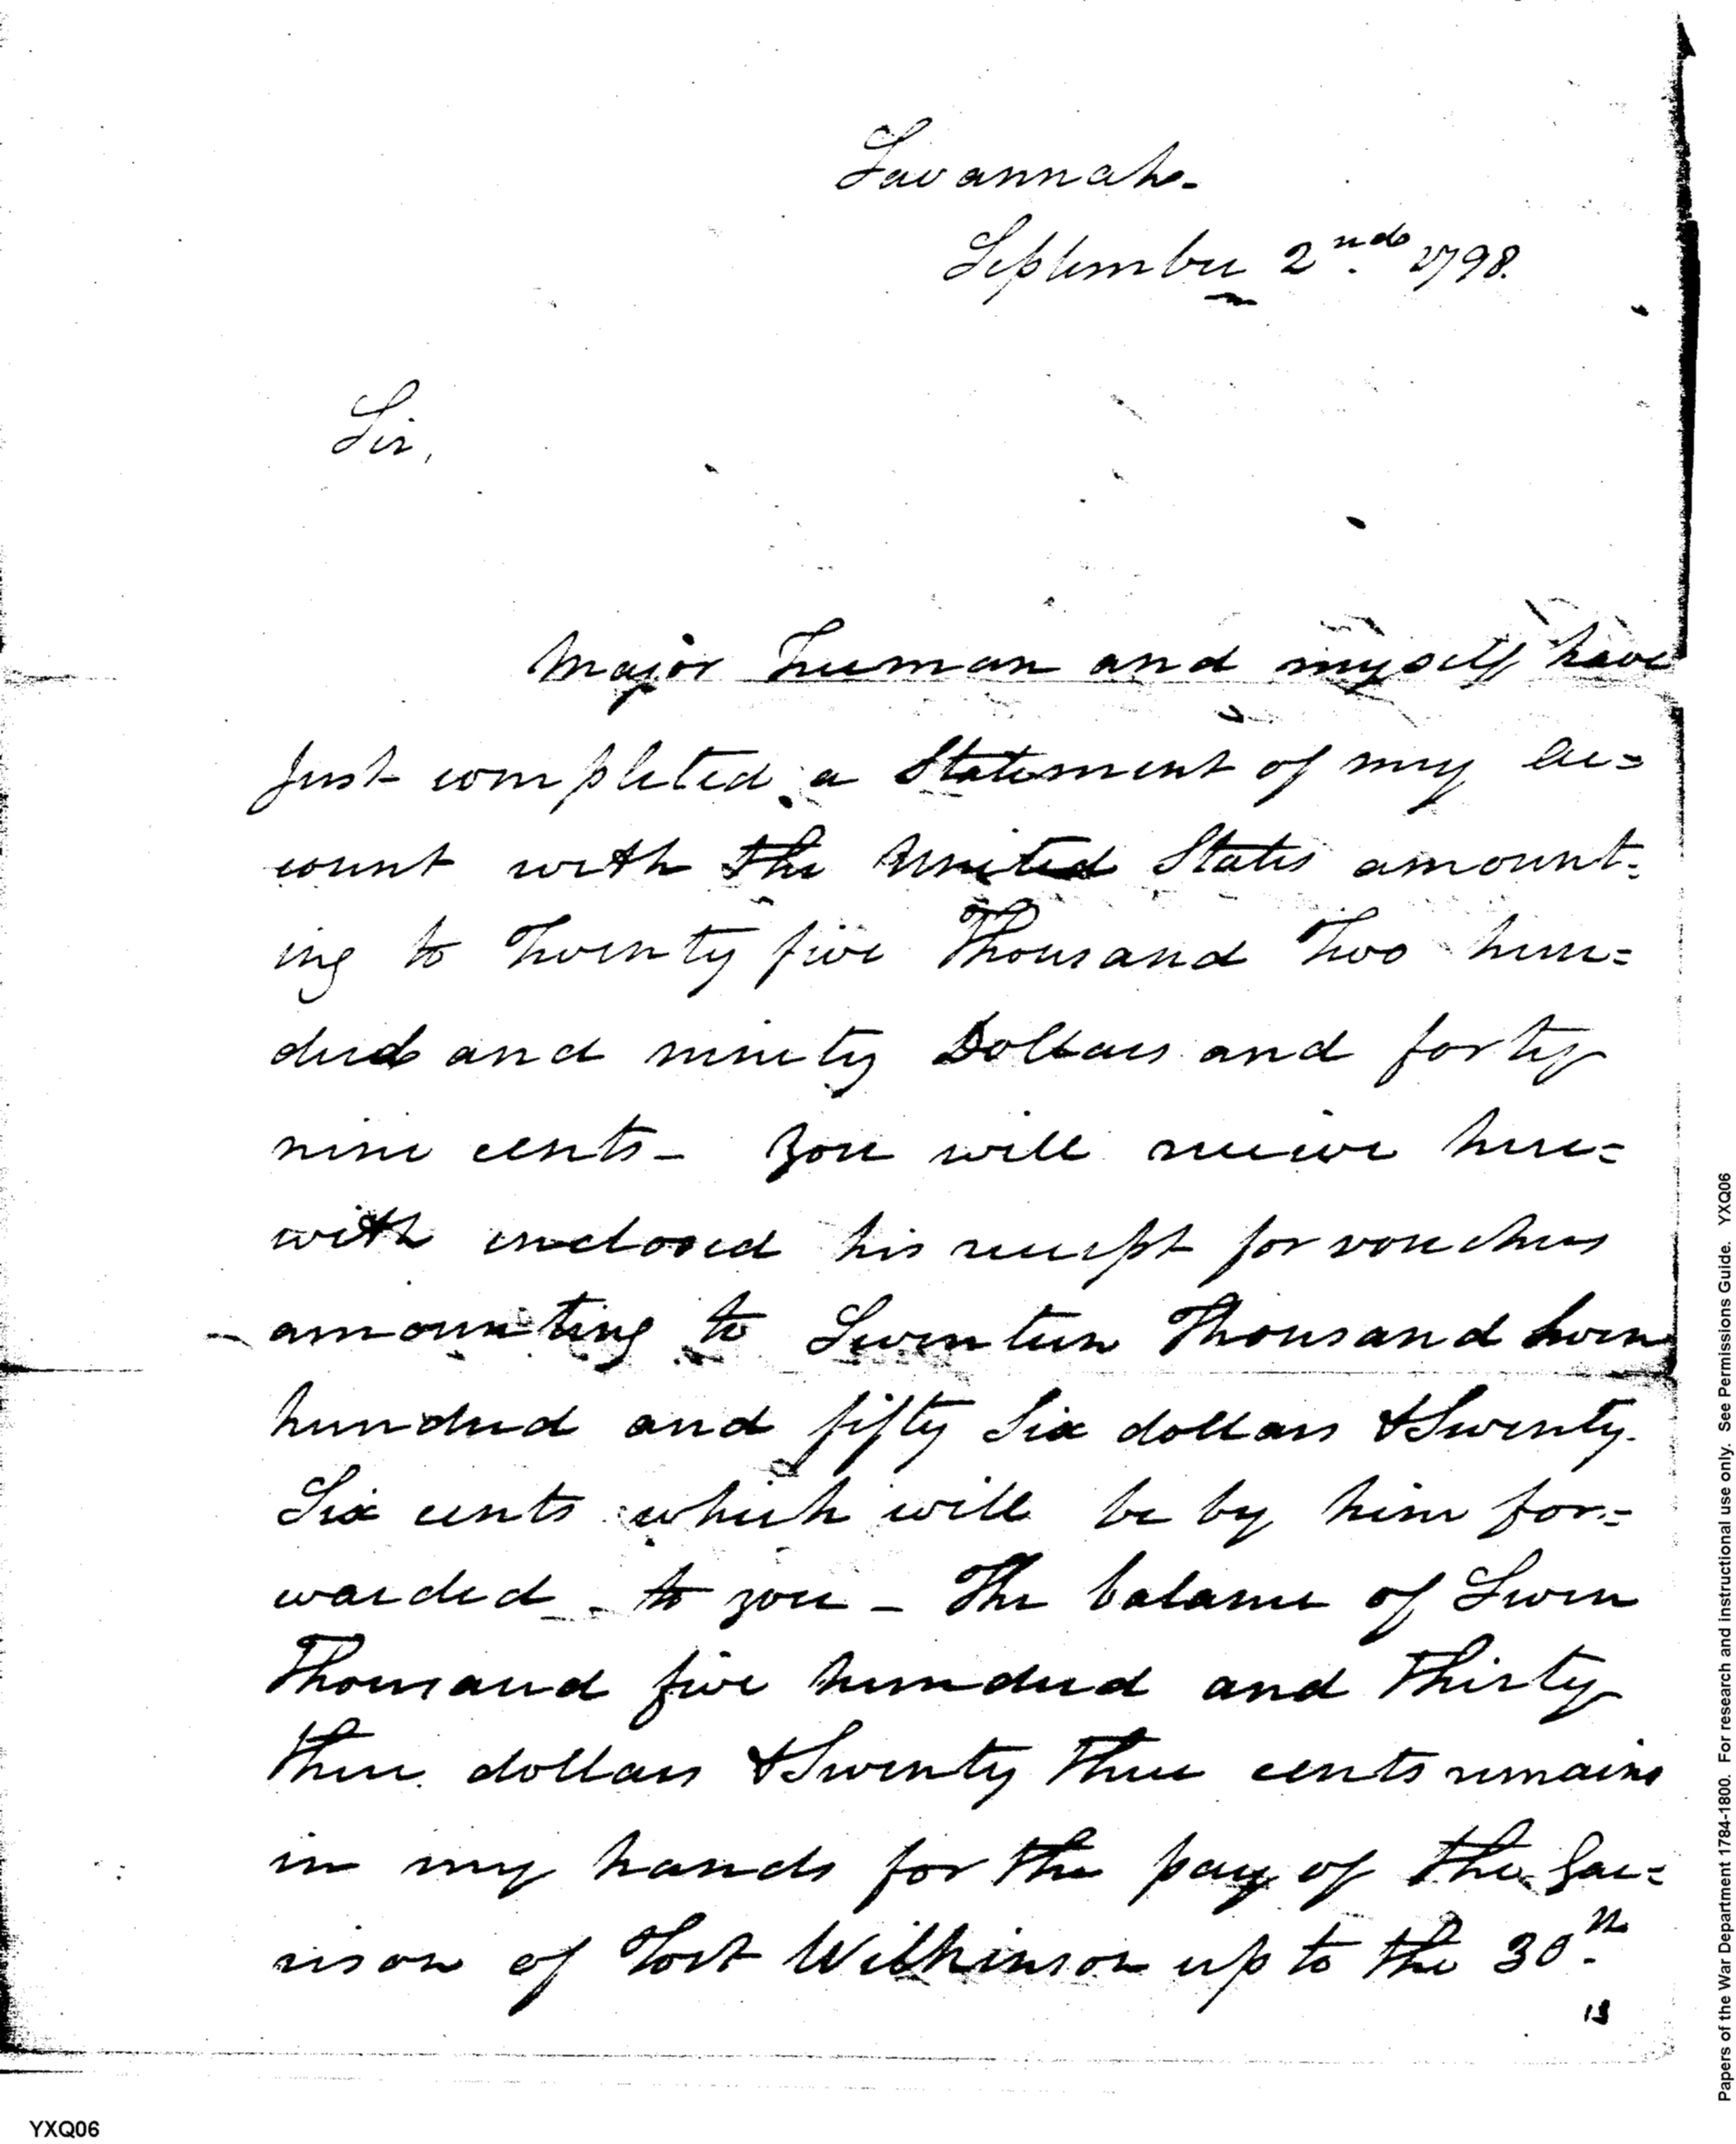 Savannah-
September 2nd. 1798.
Sir,
Major Freeman and myself have
just completed a Statement of my ac=
count with the United States amount=
ing to Twenty five Thousand Two hun=
dred and ninety Dollars and forty
nine cents - you will receive here=
with enclosed his receipt for vouchers
amounting to Seventeen Thousand seven
hundred and fifty Six dollars & Twenty
Six cents which will be by him for=
warded - to you - The balance of Seven
Thousand five hundred and Thirty
Three dollars & Twenty Three cents remains
in my hands for the pay of the Gar=
rison of Fort Wilkinson up to the 30th.
YXQ06
Papers of the War Department 1784-1800. For research and instructional use only. See Permissions Guide. YXQ06